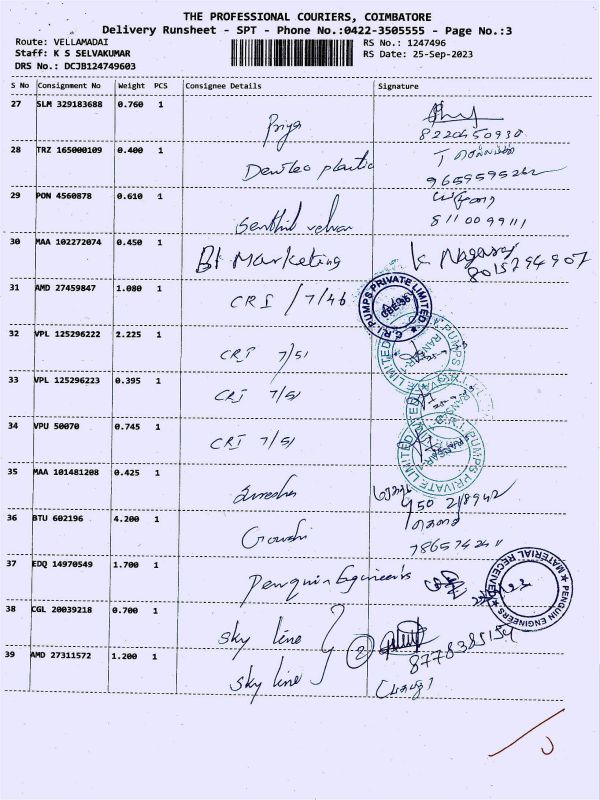 THE PROFESSIONAL COURIERS, COIMBATORE
Delivery Runsheet - SPT - Phone No.:0422-3505555 - Page No.:3
Route: VELLAMADAI
RS No.: 1247496
Staff: K S SELVAKUMAR
RS Date: 25-Sep-2023
DRS No.: DCJB124749603
S No Consignment No Weight PCS Consignee Details Signature
27 SLM 329183688 0.760 1
Priya
8220450930
28 TRZ 165000109 0.400 1
plastic
9659595262
29 PON 4560878 0.610 1
Senthil velvan
8110099111
30 MAA 102272074 0.450 1
BI Marketing K Nagaraj
8015794907
31 AMD 27459847 1.080 1
CRI / 7/46
C.R.I. PUMPS PRIVATE LIMITED
32 VPL 125296222 2.225 1
CRI 7/51
PUMPS PRIVATE LIMITED
33 VPL 125296223 0.395 1
CRI 7/51
34 VPU 50070 0.745 1
CRI 7/51
C.R.I. PUMPS PRIVATE LIMITED
35 MAA 101481208 0.425 1
Suresh
950 218942
36 BTU 602196 4.200 1
Gowshi
37 EDQ 14970549 1.700 1
Penguin Engineers
PENGUIN ENGINEERS MATERIAL RECEIVED
38 CGL 20039218 0.700 1
sky line
2
8778385154
39 AMD 27311572 1.200 1
sky line